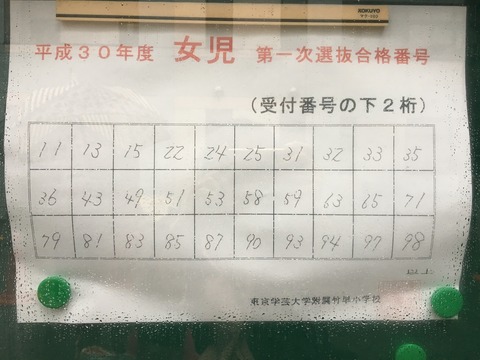 KOKUYO
平成30年度 女児 第一次選抜合格番号
(受付番号の下2桁)
11 13 15 22 24 25 31 32 33 35
36 43 49 51 53 58 59 63 65 71
79 81 83 85 87 90 93 94 97 98
東京学芸大学附属竹早小学校